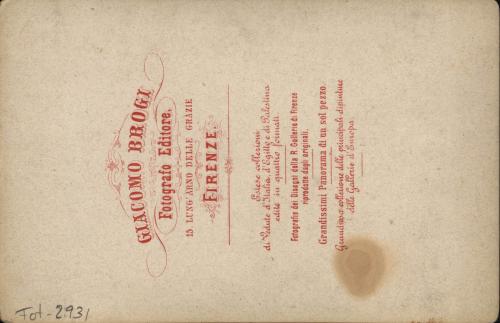 GIACOMO BROGI
Fotografo Editore.
15. LUNG'ARNO DELLE GRAZIE
FIRENZE.
Estese collezioni
di Vedute d'Italia, d'Egitto e di Palestina
edite in quattro formati.
Fotografie dei Disegni della R. Galleria di Firenze
riprodotte dagli originali.
Grandissimi Panorama di un sol pezzo.
Grandiosa collezione delle principali dipinture
delle Gallerie d'Europa.
Fot-2931